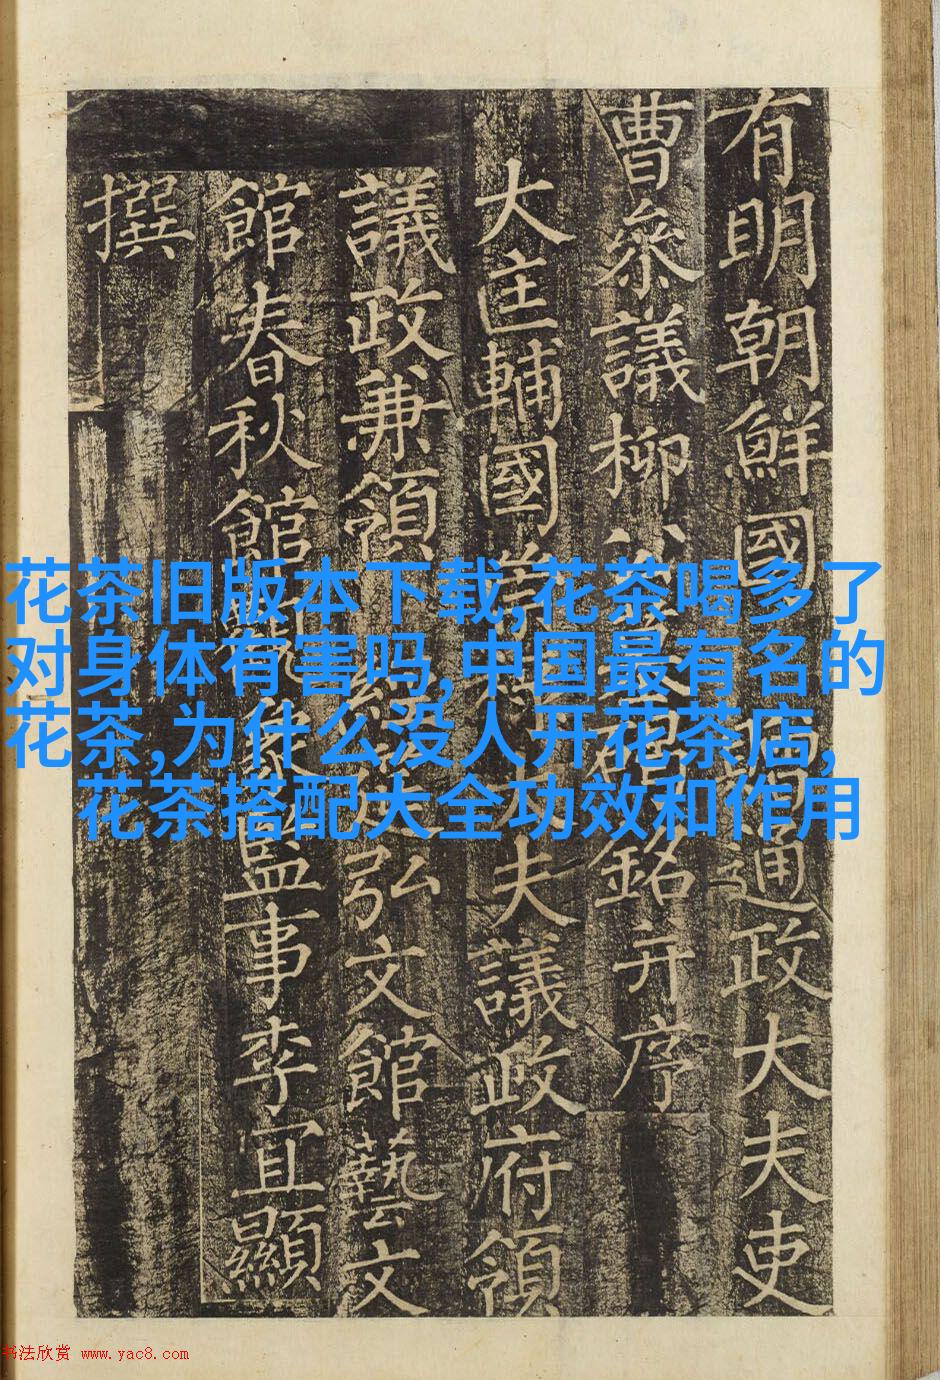 有明朝鮮國通政大夫吏
曹叅議柳公墓碣銘并序
大匡輔國崇大夫議政府領
議政兼領經筵弘文館藝文
館春秋館觀象監事李宜顯
撰
花茶旧版本下载,花茶喝多了
对身体有害吗,中国最有名的
花茶,为什么没人开花茶店,
花茶搭配大全功效和作用
书法欣赏 www.yac8.com